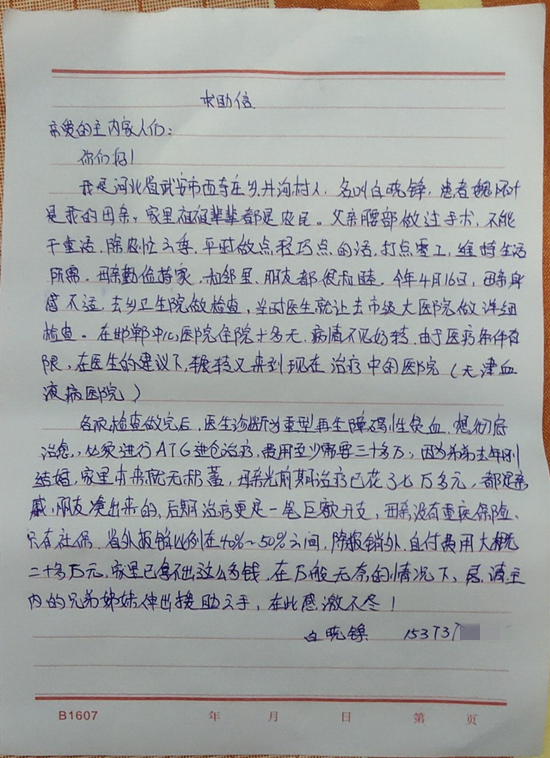 求助信
亲爱的主内家人们:
你们好!
我是河北省武安市西寺庄乡井沟村人,名叫白晓锋,患者魏
是我的母亲,家里祖祖辈辈都是农民。父亲腰部做过手术,不能
干重活,除农忙之季,平时做点轻巧点的活,打点零工,维持生活
所需。母亲勤俭持家,和邻里、朋友都很和睦。今年4月16日,母亲身
感不适,去乡卫生院做检查,当时医生就让去市级大医院做详细
检查。在邯郸中心医院住院十多天,病情不见好转,由于医疗条件有
限,在医生的建议下,辗转又来到现在治疗中的医院(天津血
液病医院)
各项检查做完后,医生诊断为重型再生障碍性贫血,想彻底
治愈,必须进行ATG进仓治疗,费用至少需要三十多万,因为弟弟去年刚
结婚,家里本来就无积蓄,母亲光前期治疗已花了七万多元,都是亲
戚,朋友凑出来的,后期治疗更是一笔巨额开支,母亲没有重疾保险,
只有社保,省外报销比例在40%~50%之间,除报销外,自付费用大概
二十多万元,家里已拿不出这么多钱,在万般无奈的情况下,恳请主
内的兄弟姊妹伸出援助之手,在此感激不尽!
白晓锋 15373
B1607 年 月 日 第 页